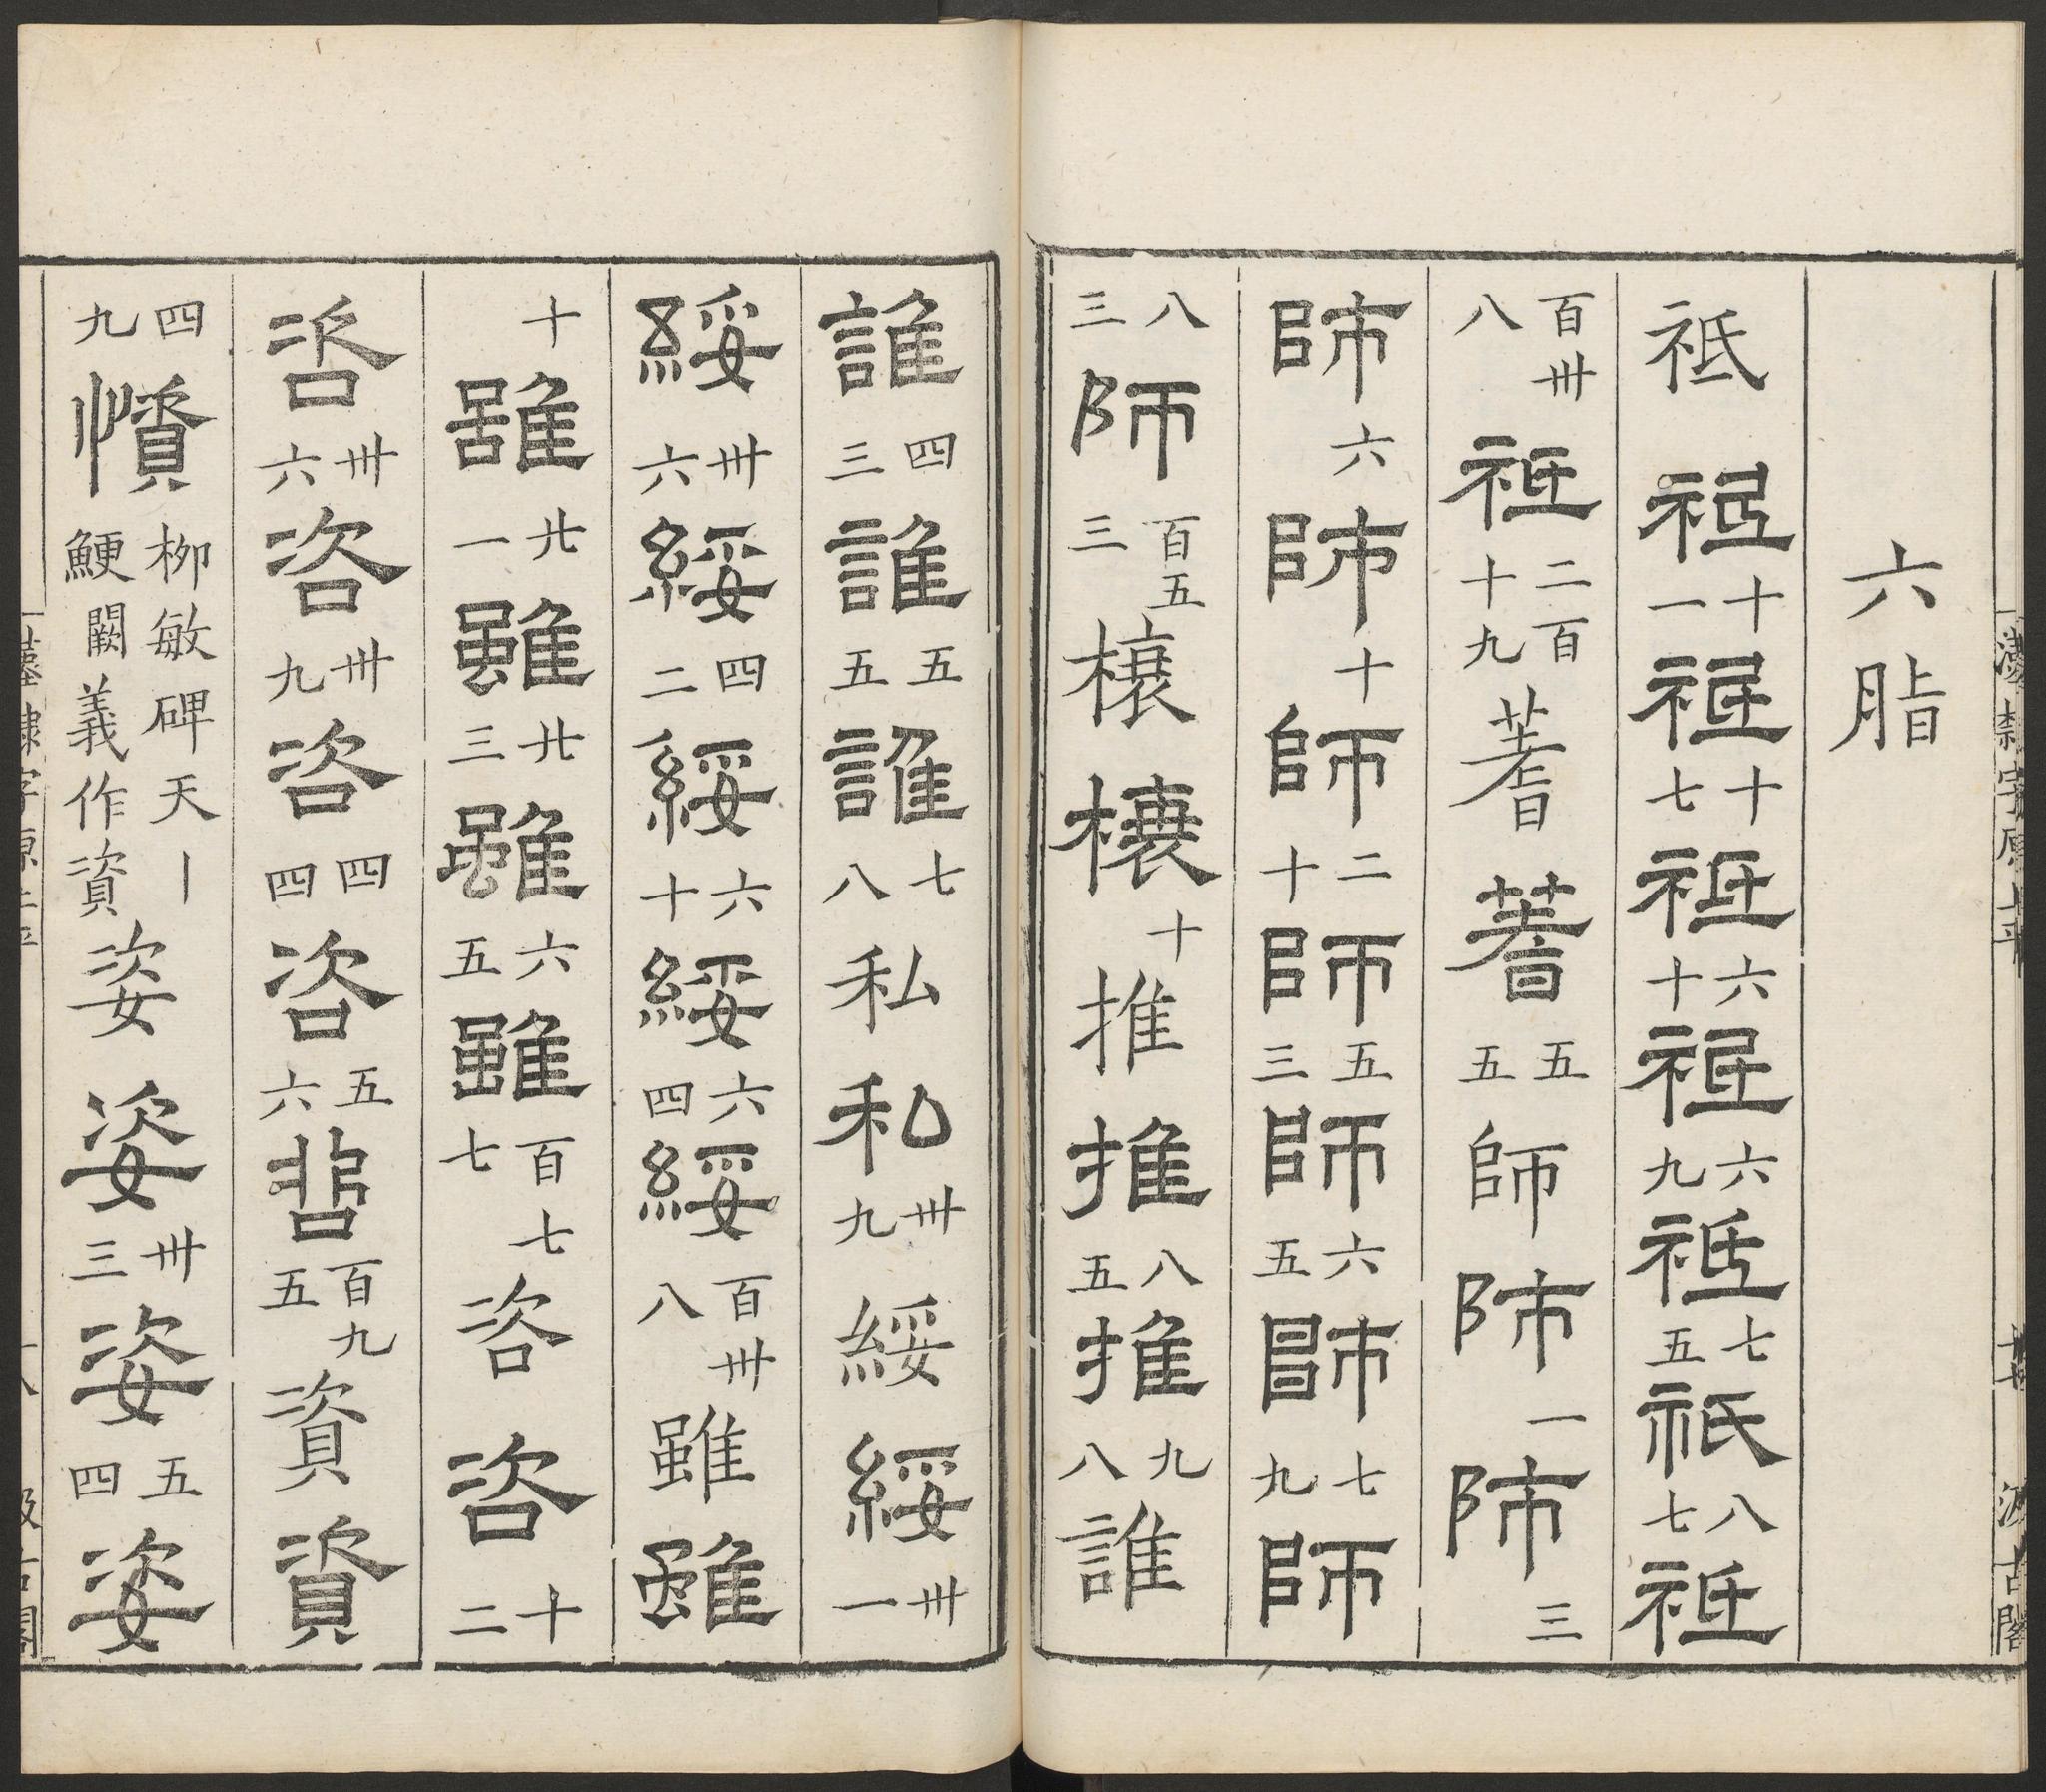 漢隸字原上平 汲古閣
六脂
祗 祗十一祗十七祗六十祗六九祗七五祗八七祗
百卅八祗二百十九蓍 蓍五五師 師一師三
師六師十師二十師五三師六五師七九師
八三師百五三榱 榱十推 推八五推九八誰
誰四三誰五五誰七八私 私卅九綏 綏卅一
綏卅六綏四二綏六十綏六四綏百卅八雖 雖
十雖廿一雖廿三雖六五雖百七七咨 咨十二
咨卅六咨卅九咨四四咨五六咨百九五資 資
四九 柳敏碑天丨鯁闕義作資姿 姿卅三姿五四姿